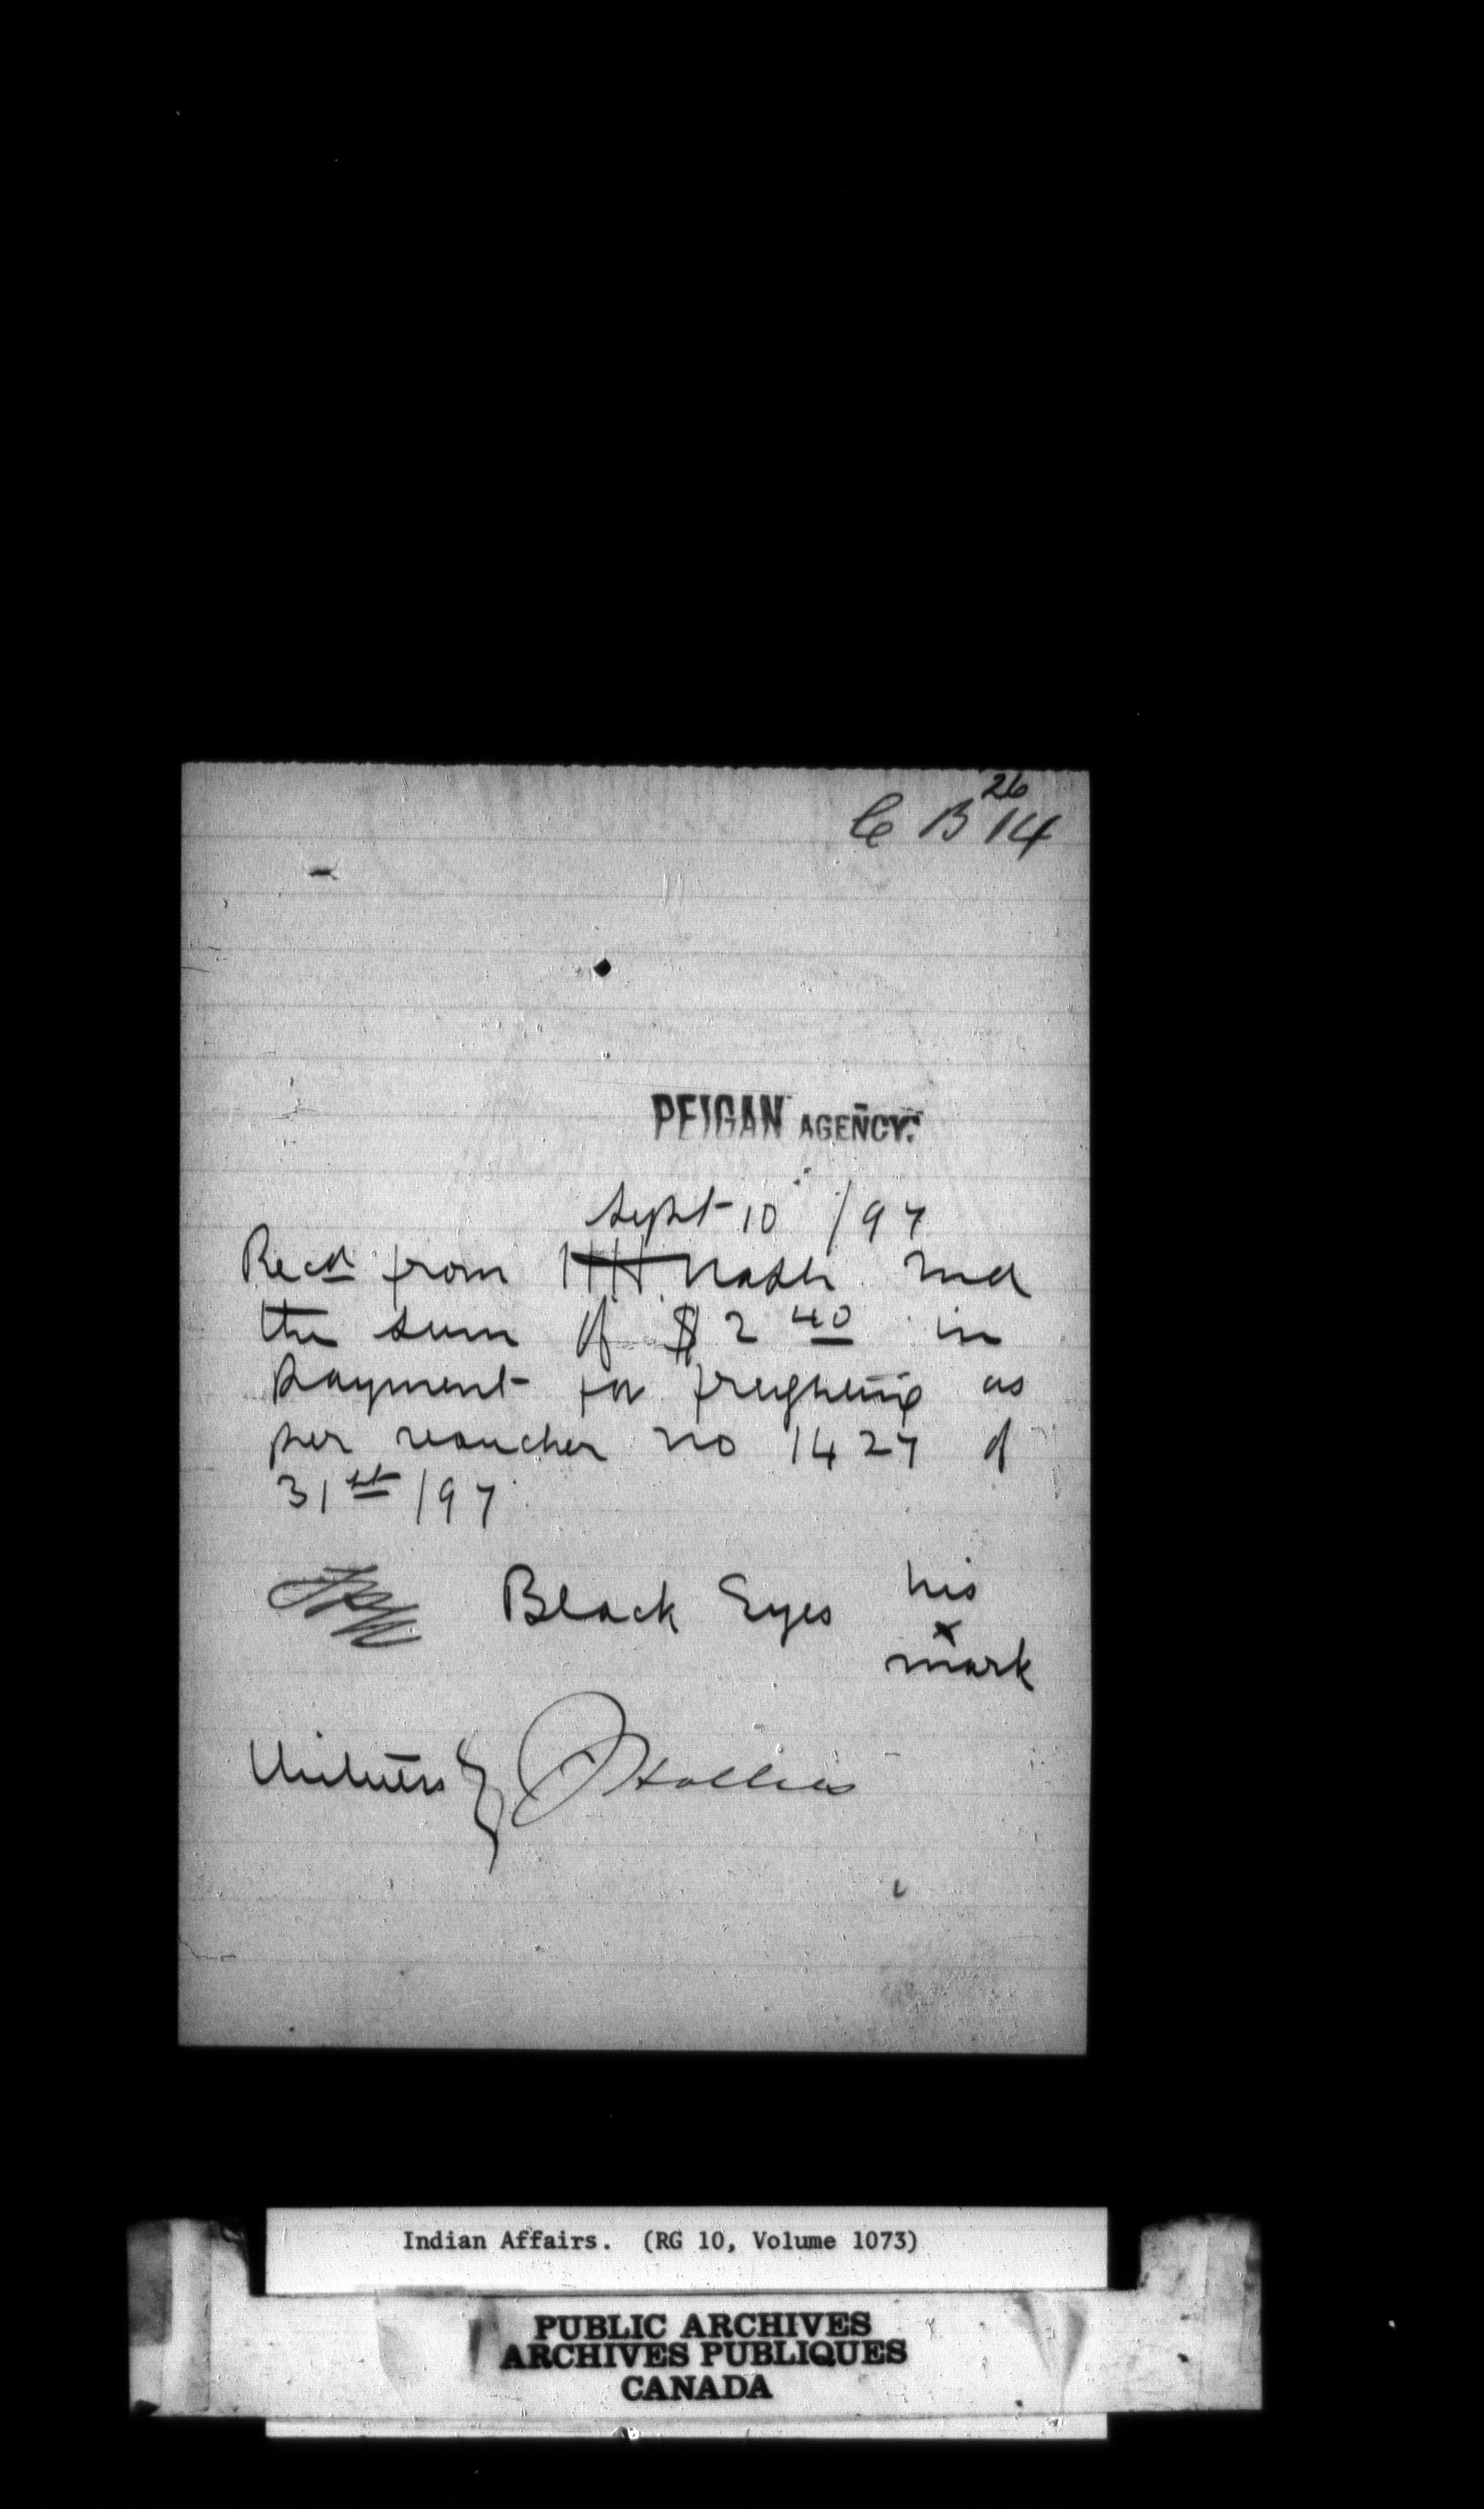 26
C B 14
PEIGAN AGENCY.
Sept 10 /97
Recd from HH Nash Ind
the sum of $2 40 in
payment for freighting as
per voucher no 1427 of
31st /97
Black Eyes his
x
mark
Witness } J Hollies
Indian Affairs. (RG 10, Volume 1073)
PUBLIC ARCHIVES
ARCHIVES PUBLIQUES
CANADA